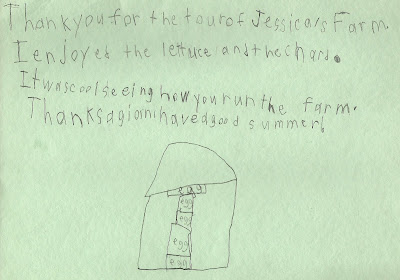 Thank you for the tour of Jessica's Farm.
I enjoyed the lettuce and the chard.
It was cool seeing how you run the farm.
Thanks agian haved good summer!
egg
egg
egg
egg
egg